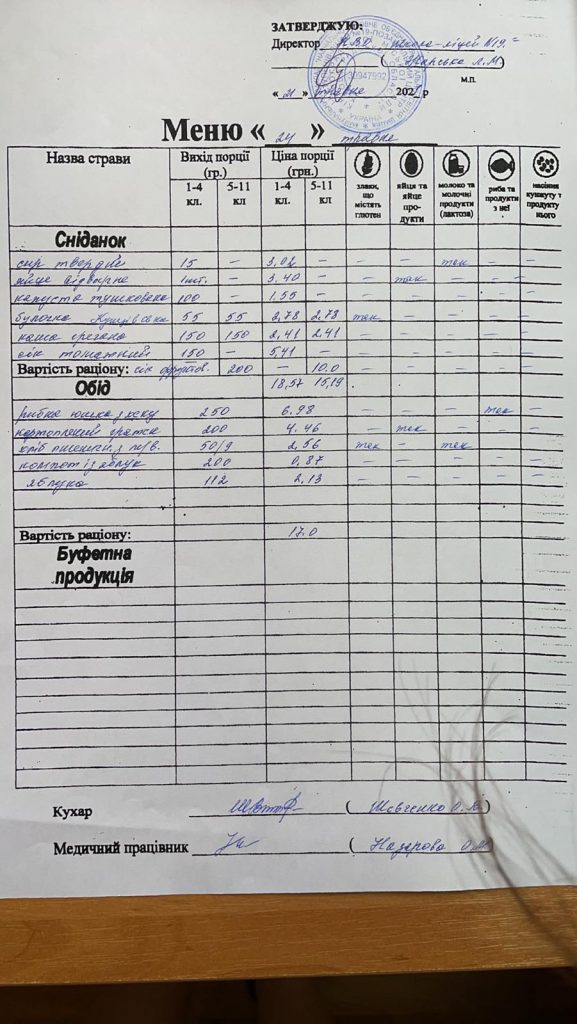 ЗАТВЕРДЖУЮ:
Директор КВД школа-ліцей №19
( Л.М)
М.П.
« 21 » травня 202 р
Меню « 24 » травня
Назва страви Вихід порції (гр.) Ціна порції (грн.) злаки, що містять глютен яйця та яйце продукти молоко та молочні продукти (лактоза) риба та продукти з неї насіння кунжуту т продукту нього
1-4 кл. 5-11 кл 1-4 кл. 5-11 кл.
Сніданок
сир твердий 15 – 3,02 – – – так – –
яйце відварне 1шт. – 3.40 – – так – – –
капуста тушкована 100 – 1.55 – – – – – –
булочка 55 55 2,78 2.78 так – – – –
каша гречана 150 150 2,41 2.41 – – – – –
сік томатний 150 – 5,41 – – – – – –
Вартість раціону: сік фруктов. 200 – 10.0
Обід 18,57 15,19
рибна юшка з хеку 250 6.98 – – – так –
картопляний 200 4.46 – так – – –
хліб пшенич. з 50/9 2,56 так – так – –
компот із яблук 200 0,87 – – – – –
яблуко 112 2,13 – – – – –
Вартість раціону: 17.0
Буфетна продукція
Кухар ( Шевченко О. )
Медичний працівник ( Назарова О.М )
УКРАЇНА
30947992